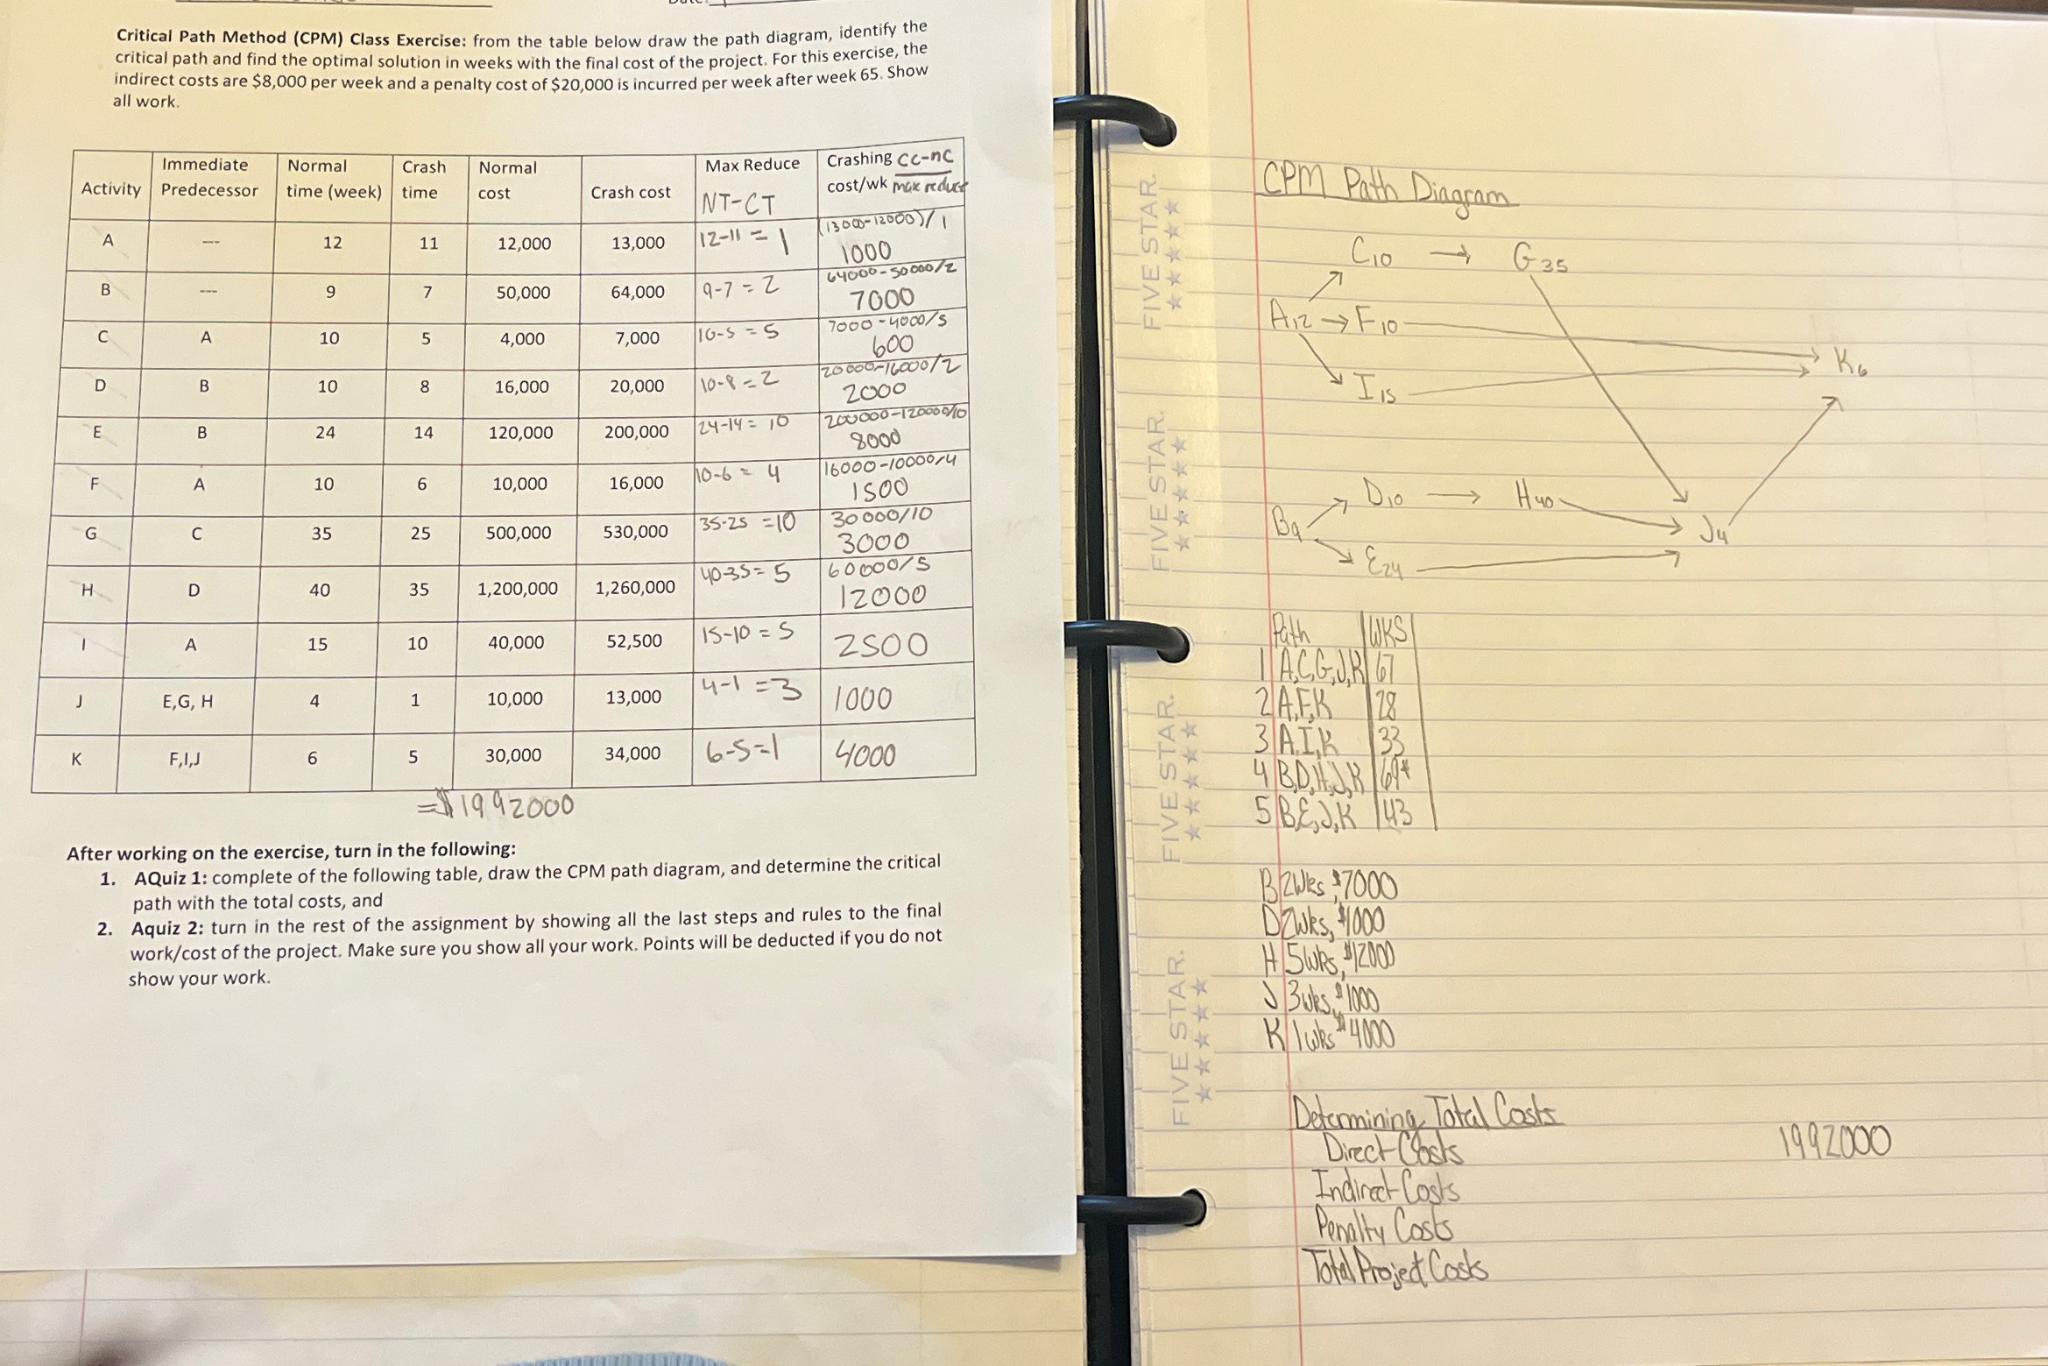 Critical Path Method (CPM) Class Exercise: from the table below draw the path diagram, identify the
critical path and find the optimal solution in weeks with the final cost of the project. For this exercise, the
indirect costs are $8,000 per week and a penalty cost of $20,000 is incurred per week after week 65. Show
all work.
Activity Immediate Predecessor Normal time (week) Crash time Normal cost Crash cost Max Reduce NT-CT Crashing cost/wk CC-nC max reduce
A --- 12 11 12,000 13,000 12-11 = 1 (13000-12000)/1 1000
B --- 9 7 50,000 64,000 9-7 = 2 64000-50000/2 7000
C A 10 5 4,000 7,000 10-5 = 5 7000-4000/5 600
D B 10 8 16,000 20,000 10-8 = 2 20000-16000/2 2000
E B 24 14 120,000 200,000 24-14 = 10 200000-120000/10 8000
F A 10 6 10,000 16,000 10-6 = 4 16000-10000/4 1500
G C 35 25 500,000 530,000 35-25 = 10 30000/10 3000
H D 40 35 1,200,000 1,260,000 40-35 = 5 60000/5 12000
I A 15 10 40,000 52,500 15-10 = 5 2500
J E,G, H 4 1 10,000 13,000 4-1 = 3 1000
K F,I,J 6 5 30,000 34,000 6-5=1 4000
=$1992000
After working on the exercise, turn in the following:
1. AQuiz 1: complete of the following table, draw the CPM path diagram, and determine the critical
path with the total costs, and
2. Aquiz 2: turn in the rest of the assignment by showing all the last steps and rules to the final
work/cost of the project. Make sure you show all your work. Points will be deducted if you do not
show your work.
FIVE STAR.
FIVE STAR.
FIVE STAR.
FIVE STAR.
CPM Path Diagram
C10 → G35
A12 → F10
K6
I15
D10 → H40
B9
J4
E24
Path WKS
1 A,C,G,J,K 67
2 A,F,K 28
3 A,I,K 33
4 B,D,H,J,K 69*
5 B,E,J,K 43
B 2wks, $7000
D 2wks, $1000
H 5wks, $12000
J 3wks, $1000
K 1wks $4000
Determining Total Costs
Direct Costs 1992000
Indirect Costs
Penalty Costs
Total Project Costs